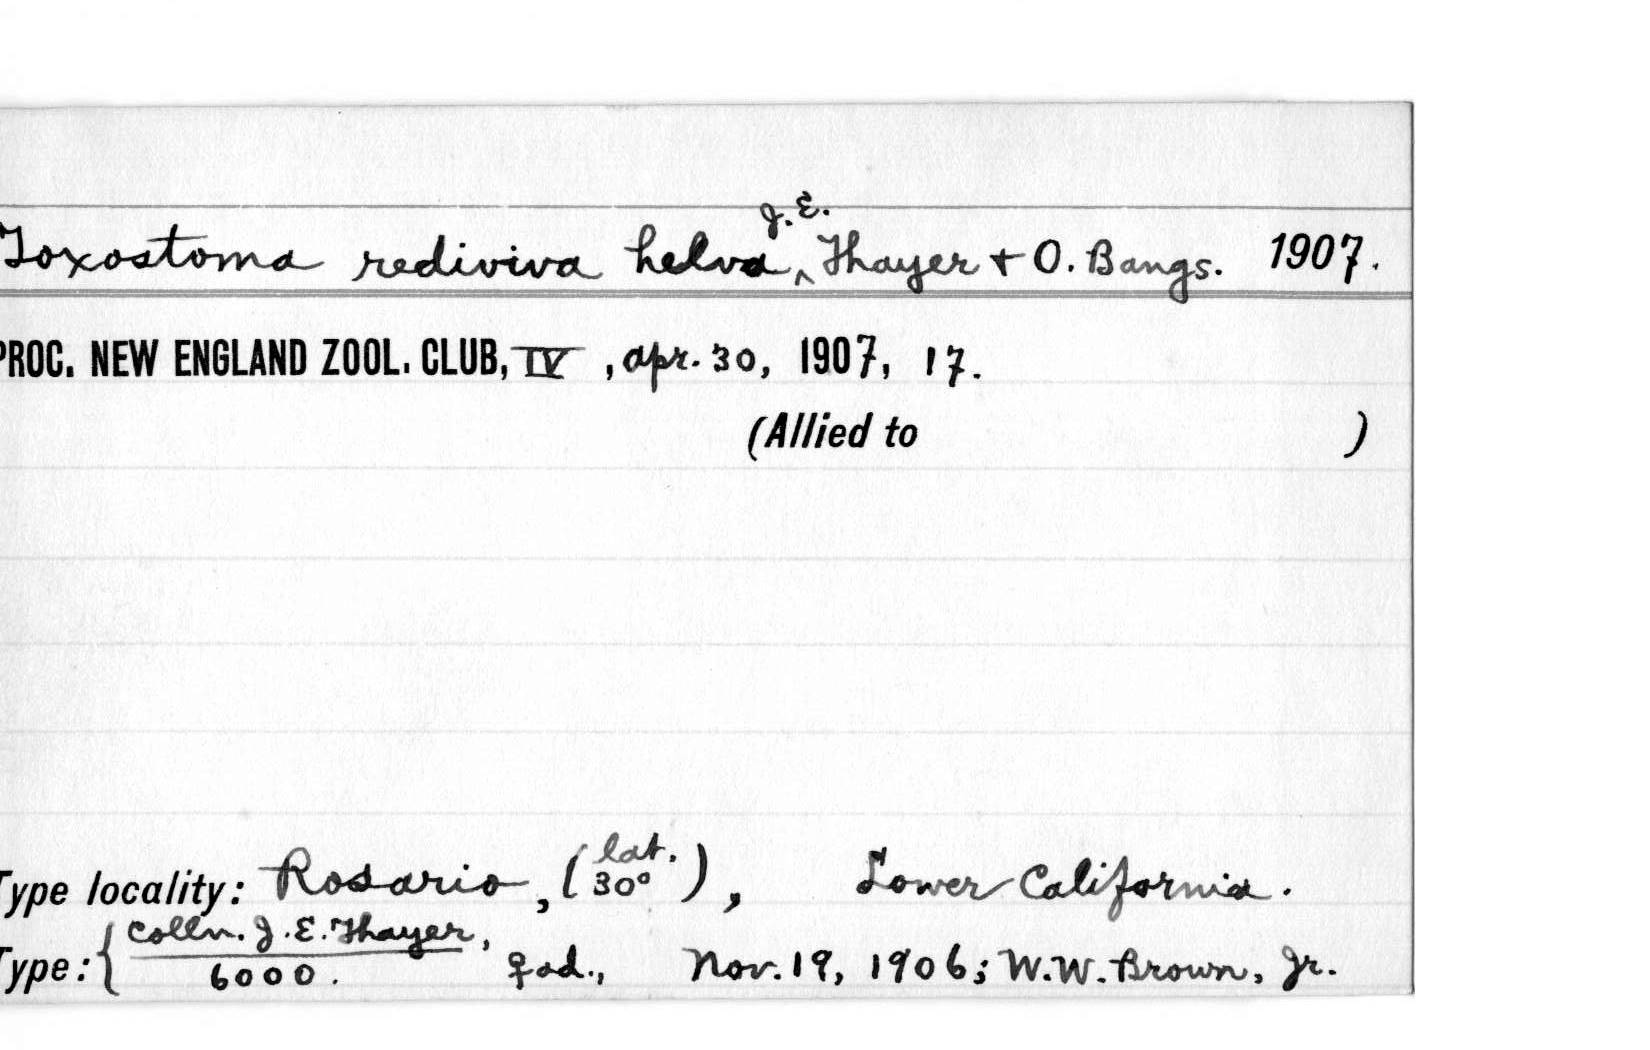 Toxostoma rediviva helva J. E. Thayer + O. Bangs. 1907.
PROC. NEW ENGLAND ZOOL. CLUB, IV, apr. 30, 1907, 17.
(Allied to )
Type locality: Rosario, (lat. 30°), Lower California.
Type: { Colln. J. E. Thayer, 6000. ♀ ad., Nov. 19, 1906; W. W. Brown, Jr.